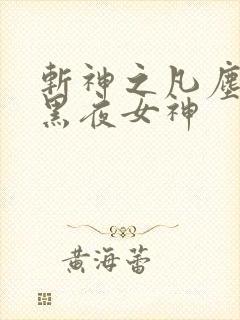 斬神之凡塵
黑夜女神
黄海蕾